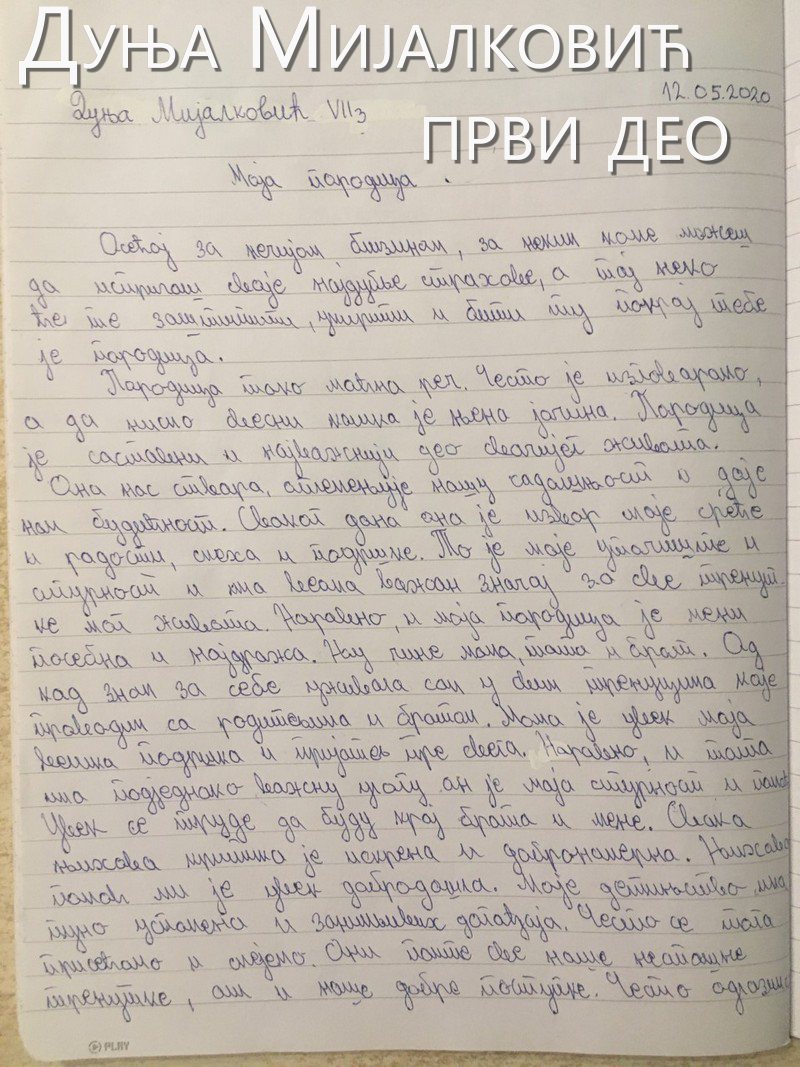 Дуња Мијалковић
12.05.2020
Дуња Мијалковић VII3
ПРВИ ДЕО
Моја породица.
Осећај за нечијом близином, за неким коме можеш
да испричаш своје најдубље страхове, а тај неко
ће те заштитити, умирити и бити ту покрај тебе
је породица.
Породица тако моћна реч. Често је изговарамо,
а да нисмо свесни колика је њена јачина. Породица
је саставни и најважнији део свачијег живота.
Она нас ствара, оплемењује нашу садашњост и даје
нам будућност. Сваког дана она је извор моје среће
и радости, смеха и подршке. То је моје уточиште и
сигурност и има веома важан значај за све тренут-
ке мог живота. Наравно, и моја породица је мени
посебна и најдража. Њу чине мама, тата и брат. Од
кад знам за себе уживала сам у свим тренуцима које
проводим са родитељима и братом. Мама је увек моја
велика подршка и пријатељ пре свега. Наравно, и тата
има подједнако важну улогу он је моја сигурност и
Увек се труде да буду крај брата и мене. Свака
њихова критика је искрена и добронамерна. Њихова
помоћ ми је увек добродошла. Моје детињство има
пуно успомена и занимљивих догађаја. Често се тога
присећамо и смејемо. Они памте све наше несташне
тренутке, али и наше добре поступке. Често одлазимо
PLAY